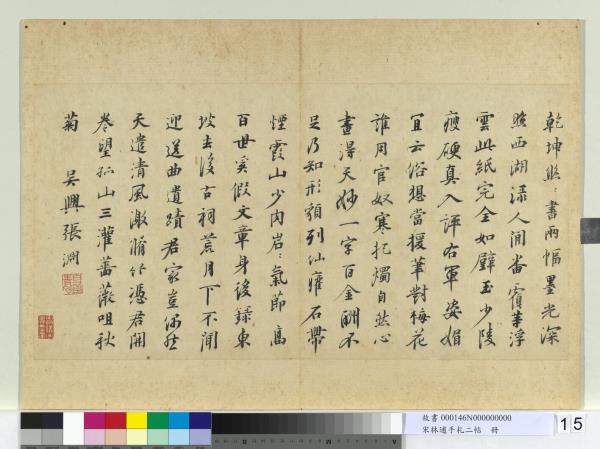 乾坤照之書兩幅墨光深
照西湖渌人間番賓茟浮
雲此紙完全如璧玉少陵
瘦硬真入評右軍姿媚
宜云俗想當援筆對梅花
誰用官奴寒把燭自然心
畫得天妙一字百金酬不
足乃知形貌列仙臞石帶
煙霞山少肉岩之氣節高
百世奚假文章身後錄東
坡去後古祠荒月下不聞
迎送曲遺蹟君家豈偶然
天遣清風激脩竹憑君開
卷望孤山三灌薔薇咀秋
菊 吳興張淵
故書 000146N000000000
宋林逋手札二帖 冊
15